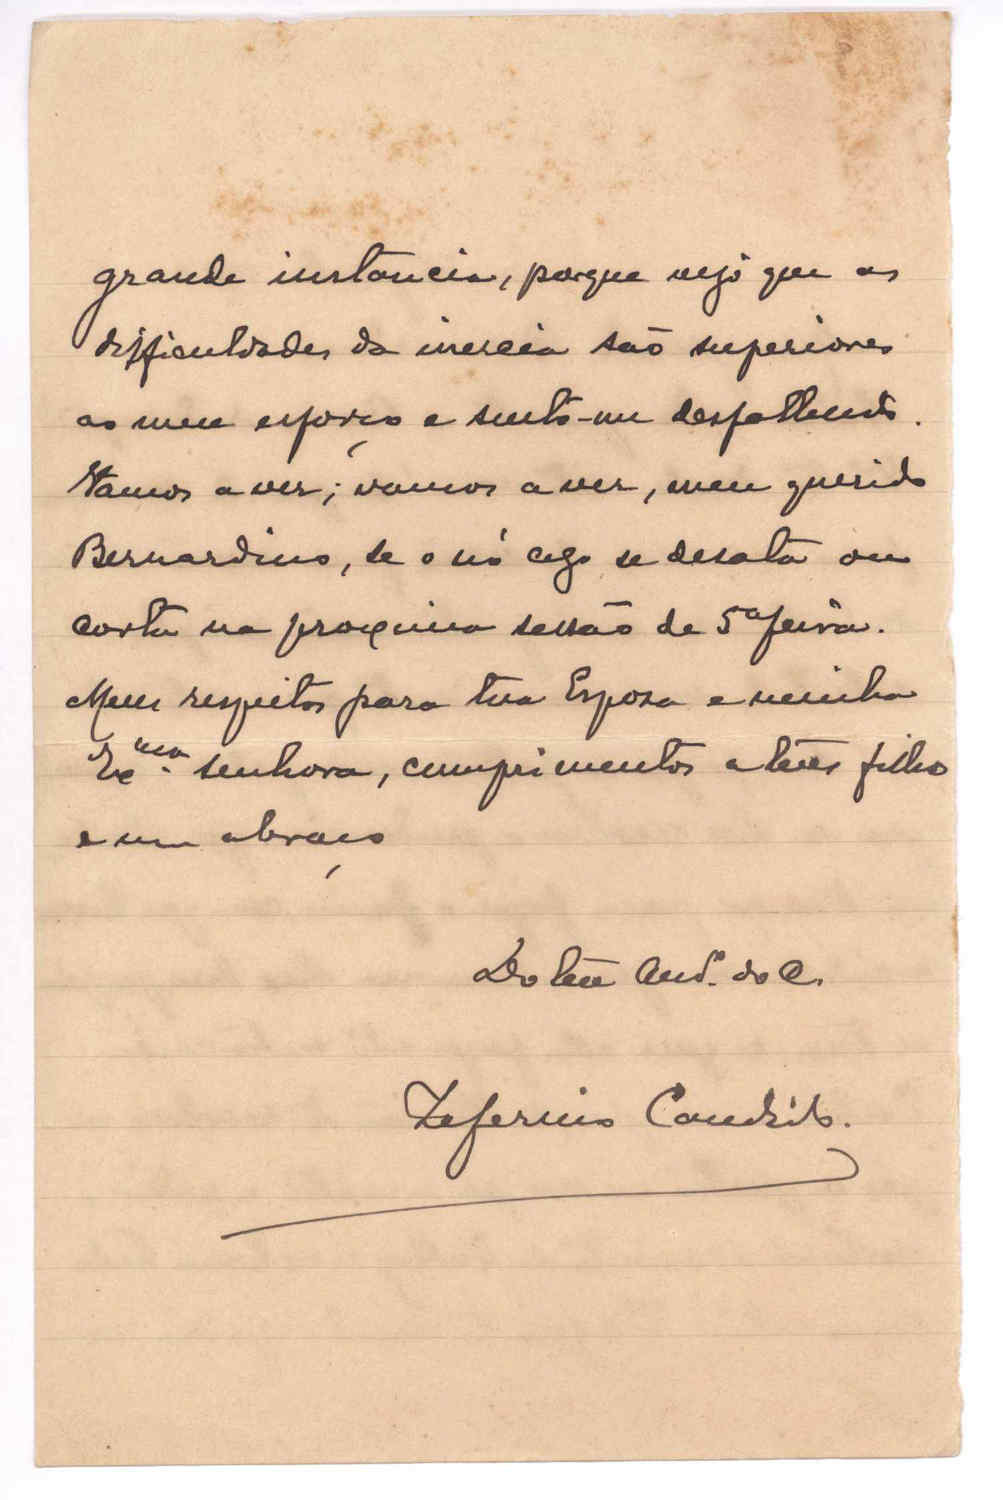 grande instancia, porque vejo que as
difficuldades da inercia são superiores
ao meu esforço e sinto-me desfallecido.
Vamos a ver; vamos a ver, meu querido
Bernardino, se o nó cego se desata ou
corta na proxima sessão de 5ª feira.
Meus respeitos para tua Esposa e minha
Exma. senhora, cumprimentos a teus filhos
e um abraço
Do teu do C.
Zeferino Candido.